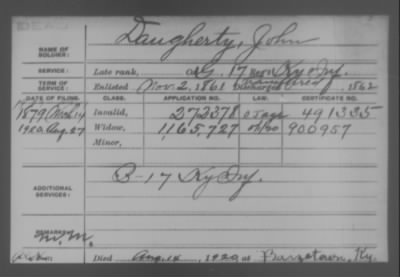 DEAD
NAME OF SOLDIER: Daugherty, John
SERVICE: Late rank, G. 17 Reg't Ky Inf.
TERM OF SERVICE: Enlisted Nov. 2, 1861 Discharged 1862
DATE OF FILING. CLASS. APPLICATION NO. LAW. CERTIFICATE NO.
1879 Invalid, 272378 491335
1920 Aug. 27 Widow, 1165,727 900957
Minor,
ADDITIONAL SERVICES: B-17 Ky Inf.
REMARKS:
Died Aug. 14, 1920 at Ky.